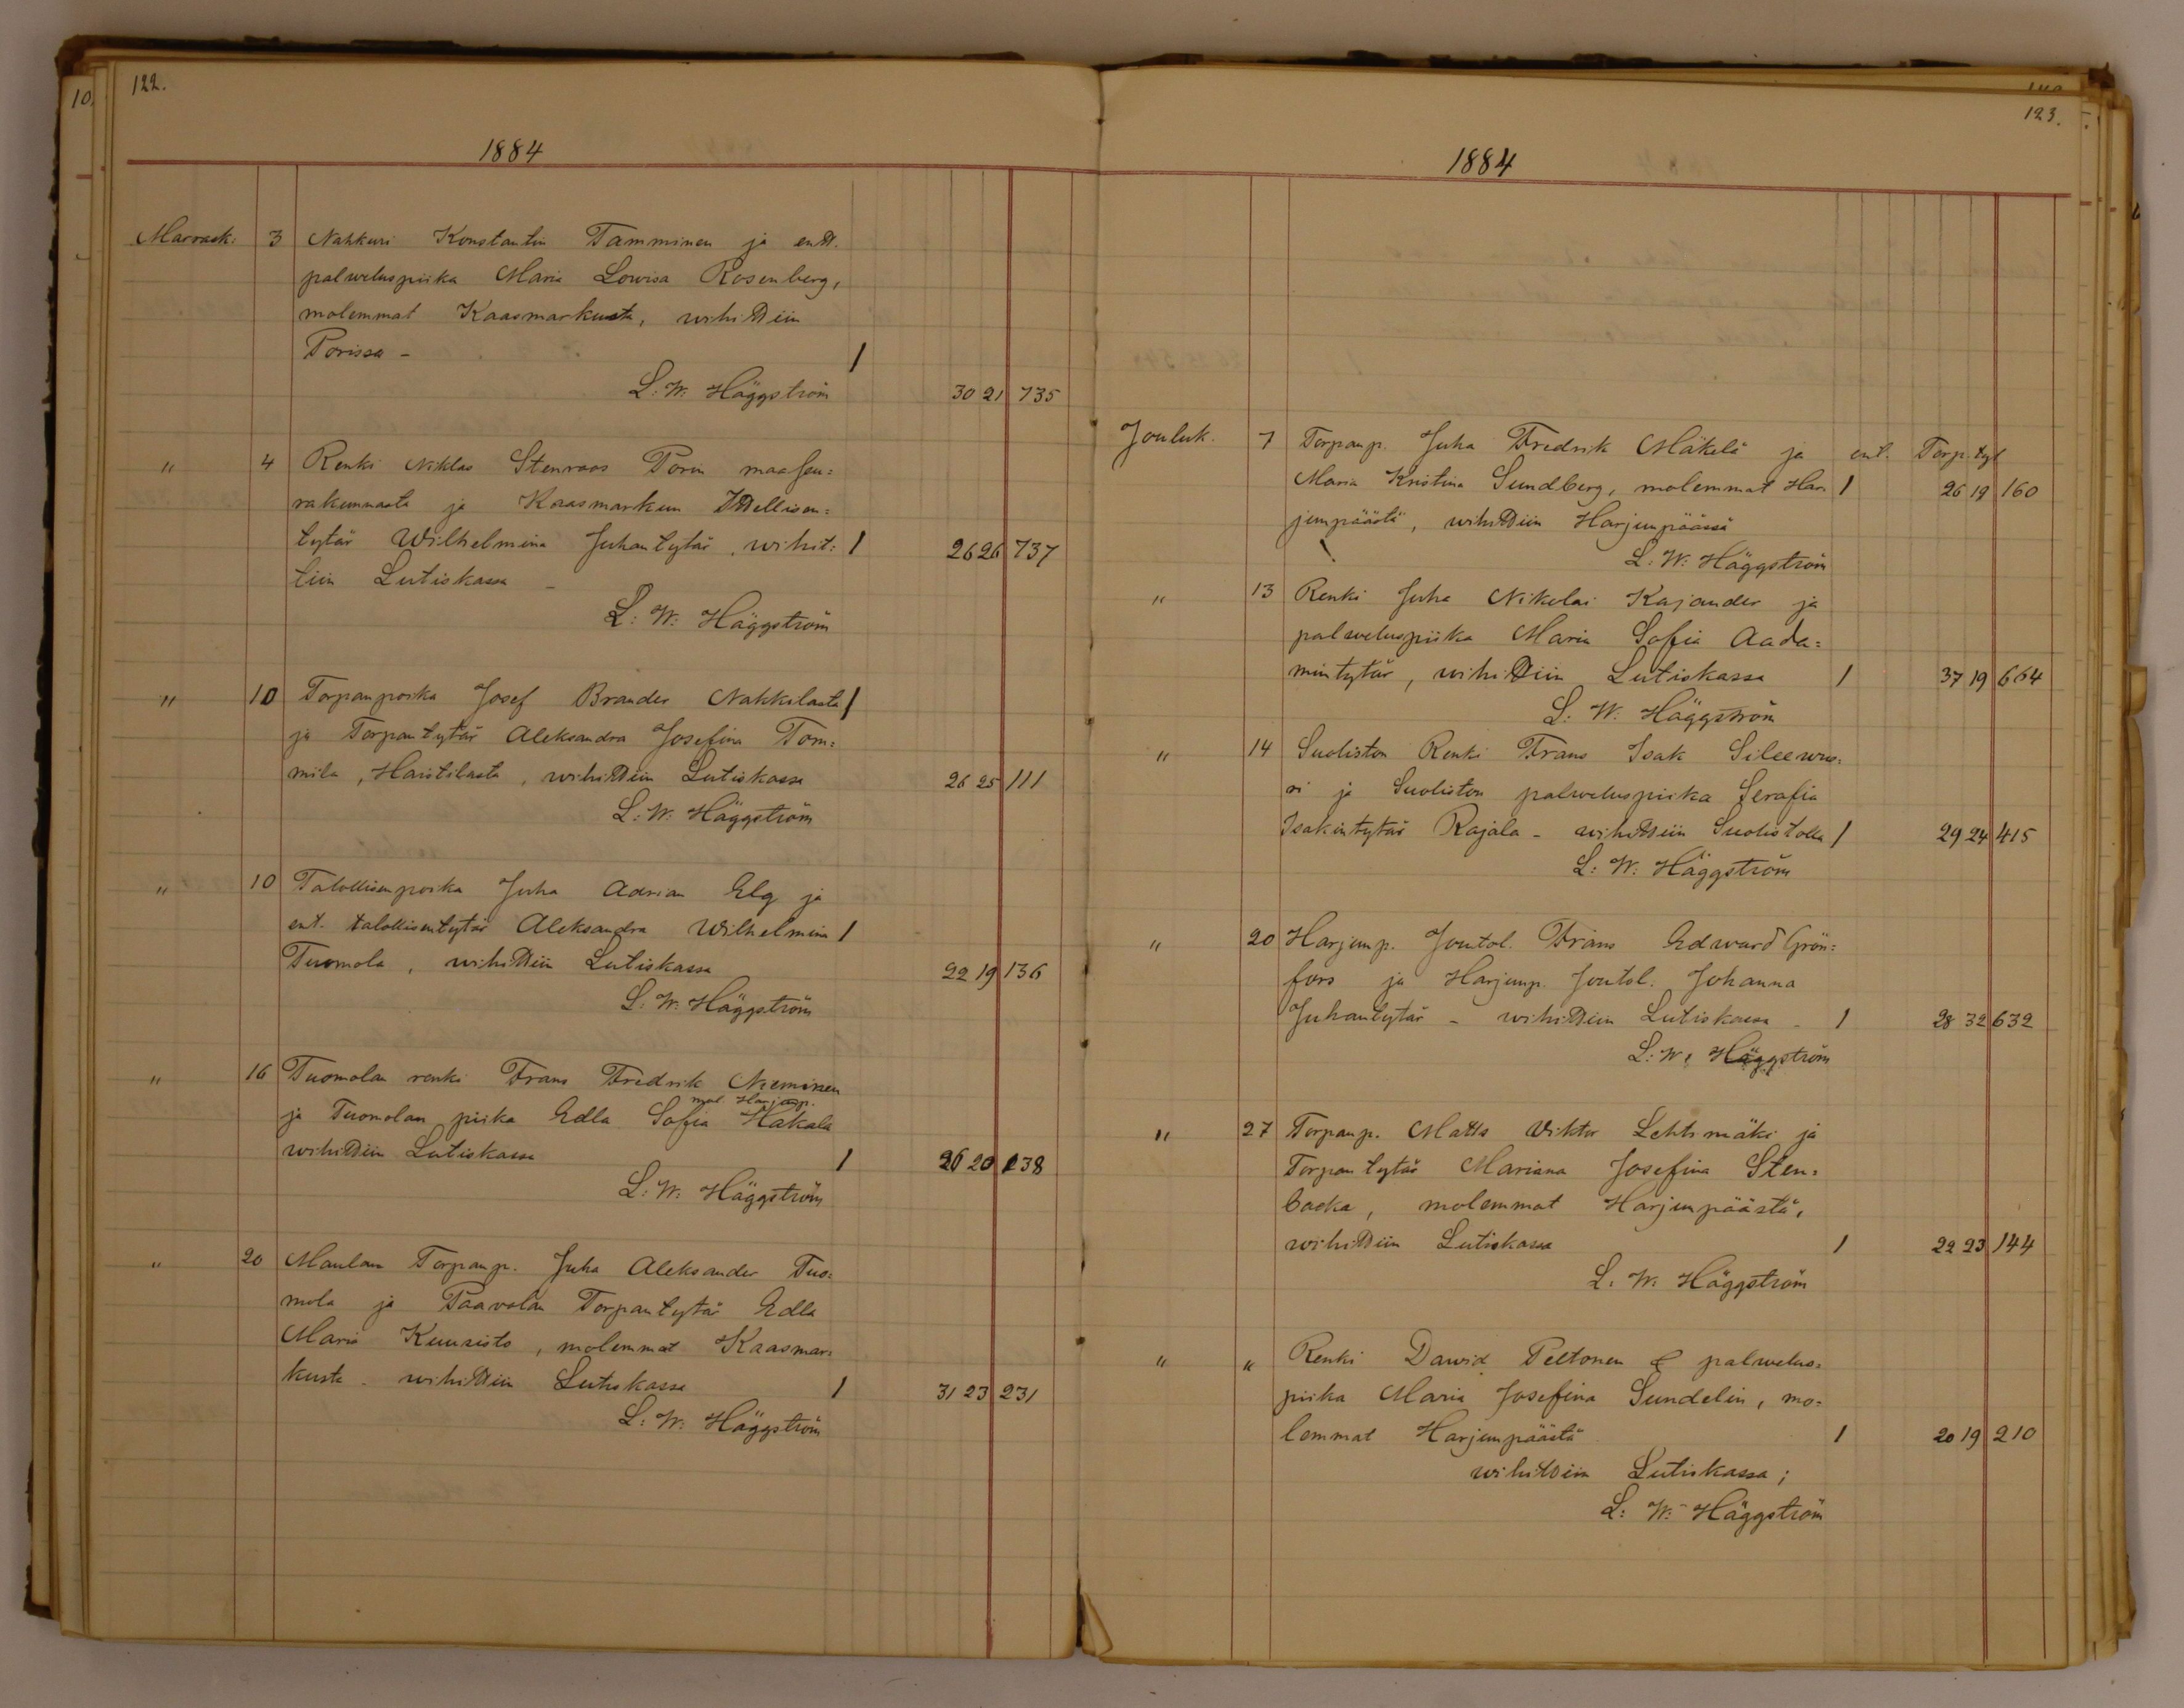 10.
122.
1884
Marrask. 3 Nahkuri Konstantin Tamminen ja entt.
palweluspiika Maria Lowisa Rosenberg,
molemmat Kaasmarkusta, wihittiin
Porissa - 1
L: W: Häggström 30 21 735
" 4 Renki Niklas Stenroos Porin maaseu=
rakunnasta ja Kaasmarkun Itsellisen=
tytär Wilhelmina Juhantytär, wihit= 1 26 26 737
tiin Lutiskassa -
L: W: Häggström
" 10 Torpanpoika Josef Brander Nakkilasta 1
ja Torpantytär Aleksandra Josefina Tom=
mila, Haistilasta, wihittiin Lutiskassa 26 25 111
L: W: Häggström
" 10 Talollisenpoika Juha Adrian Elg ja
ent. talollisentytär Aleksandra Wilhelmina 1
Tuomola, wihittiin Lutiskassa 22 19 136
L: W: Häggström
" 16 Tuomolan renki Frans Fredrik Nieminen
mol. Harjunp.
ja Tuomolan piika Edla Sofia Hakala
wihittiin Lutiskassa 1 26 20 138
L: W: Häggström
" 20 Maulan Torpanp. Juha Aleksander Tuo=
mola ja Paavolan Torpantytär Edla
Maria Kuusisto, molemmat Kaasmar=
kusta - wihittiin Lutiskassa 1 31 23 231
L: W: Häggström
123.
1884
Jouluk. 7 Torpanp. Juha Fredrik Mäkelä ja ent. Torp. tyt
Maria Kristina Sundberg, molemmat Har= 1 26 19 160
junpäästä, wihittiin Harjunpäässä
L: W: Häggström
" 13 Renki Juha Nikolai Kajander ja
palweluspiika Maria Sofia Aada=
mintytär, wihittiin Lutiskassa 1 37 19 664
L: W: Häggström
" 14 Suoliston Renki Frans Isak Sileewuo=
ri ja Suoliston palweluspiika Serafia
Isakintytär Rajala - wihittiin Suolistolla 1 29 24 415
L: W: Häggström
" 20 Harjunp. Joutol. Frans Edward Grön=
fors ja Harjunp. Joutol. Johanna
Juhantytär - wihittiin Lutiskassa - 1 28 32 632
L: W: Häggström
" 27 Torpanp. Matts Viktor Lehtimäki ja
Torpantytär Mariana Josefina Sten=
backa, molemmat Harjunpäästä,
wihittiin Lutiskassa 1 22 23 144
L: W: Häggström
" " Renki Dawid Peltonen & palwelus=
piika Maria Josefina Sundelin, mo=
lemmat Harjunpäästä 1 20 19 210
wihittiin Lutiskassa;
L: W: Häggström